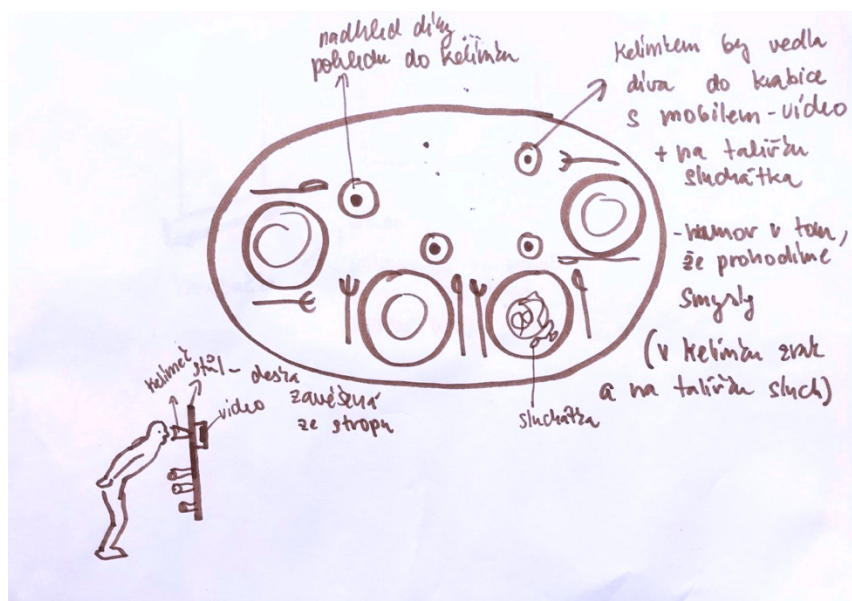 nadhled díky
pohledu do kelímku
Kelímkem by vedla
díra do krabice
s mobilem - video
+ na talířku
sluchátka
- humor v tom,
že prohodíme
smysly
(v kelímku zrak
a na talířku sluch)
sluchátka
kelímek
stůl - deska
zavěšená
ze stropu
video